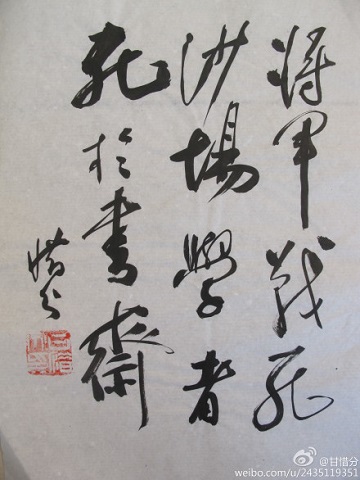 将军战死
沙場學者
死於書齋
惜分
@甘惜分
weibo.com/u/2435119351